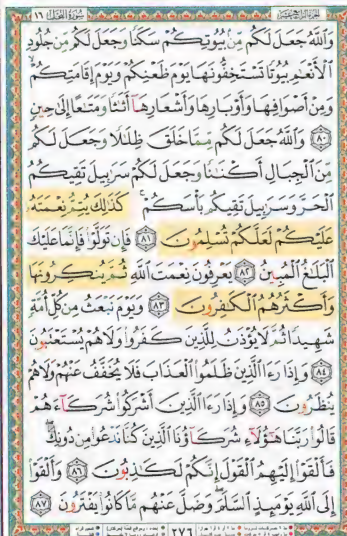 سورة النحل ١٦
وَاللَّهُ جَعَلَ لَكُم مِّنۢ بُيُوتِكُمْ سَكَنًا وَجَعَلَ لَكُم مِّن جُلُودِ
الْأَنْعَامِ بُيُوتًا تَسْتَخِفُّونَهَا يَوْمَ ظَعْنِكُمْ وَيَوْمَ إِقَامَتِكُمْ
وَمِنْ أَصْوَافِهَا وَأَوْبَارِهَا وَأَشْعَارِهَآ أَثَاثًا وَمَتَاعًا إِلَىٰ حِينٍ
﴿٨٠﴾ وَاللَّهُ جَعَلَ لَكُم مِّمَّا خَلَقَ ظِلَالًا وَجَعَلَ لَكُم
مِّنَ الْجِبَالِ أَكْنَانًا وَجَعَلَ لَكُمْ سَرَابِيلَ تَقِيكُمُ
الْحَرَّ وَسَرَابِيلَ تَقِيكُم بَأْسَكُمْ ۚ كَذَٰلِكَ يُتِمُّ نِعْمَتَهُ
عَلَيْكُمْ لَعَلَّكُمْ تُسْلِمُونَ ﴿٨١﴾ فَإِن تَوَلَّوْا فَإِنَّمَا عَلَيْكَ
الْبَلَاغُ الْمُبِينُ ﴿٨٢﴾ يَعْرِفُونَ نِعْمَتَ اللَّهِ ثُمَّ يُنكِرُونَهَا
وَأَكْثَرُهُمُ الْكَافِرُونَ ﴿٨٣﴾ وَيَوْمَ نَبْعَثُ مِن كُلِّ أُمَّةٍ
شَهِيدًا ثُمَّ لَا يُؤْذَنُ لِلَّذِينَ كَفَرُوا وَلَا هُمْ يُسْتَعْتَبُونَ
﴿٨٤﴾ وَإِذَا رَءَا الَّذِينَ ظَلَمُوا الْعَذَابَ فَلَا يُخَفَّفُ عَنْهُمْ وَلَا هُمْ
يُنظَرُونَ ﴿٨٥﴾ وَإِذَا رَءَا الَّذِينَ أَشْرَكُوا شُرَكَآءَهُمْ
قَالُوا رَبَّنَا هَٰٓؤُلَآءِ شُرَكَآؤُنَا الَّذِينَ كُنَّا نَدْعُوا مِن دُونِكَ ۖ
فَأَلْقَوْا إِلَيْهِمُ الْقَوْلَ إِنَّكُمْ لَكَاذِبُونَ ﴿٨٦﴾ وَأَلْقَوْا
إِلَى اللَّهِ يَوْمَئِذٍ السَّلَمَ ۖ وَضَلَّ عَنْهُم مَّا كَانُوا يَفْتَرُونَ ﴿٨٧﴾
٢٧٦